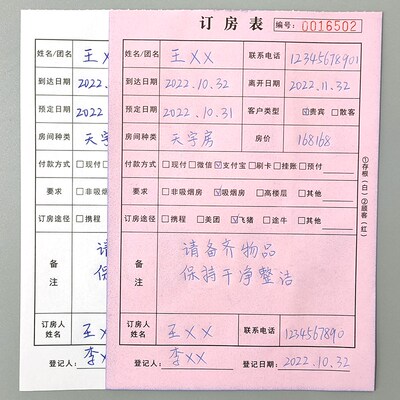 订房表 编号：0016502
姓名/团名 王XX 联系电话 12345678901
到达日期 2022.10.32 离开日期 2022.11.32
预定日期 2022.10.31 客户类型 ☑贵宾 □散客
房间种类 天字房 房价 168168
付款方式 □现付 □微信 ☑支付宝 □刷卡 □挂账 □预付
要求 □非吸烟房 ☑吸烟房 □高楼层 □其他
订房途径 □携程 □美团 ☑飞猪 □途牛 □其他
备注 请备齐物品
保持干净整洁
订房人姓名 王XX 联系电话 1234567890
登记人：李XX 登记日期：2022.10.32
①存根（白）②顾客（红）
姓名/团名 王
到达日期 2022.
预定日期 2022.
房间种类 天字
付款方式 □现付
要求 □非吸
订房途径 □携程
备注 请
保
订房人姓名 王X
登记人：李X